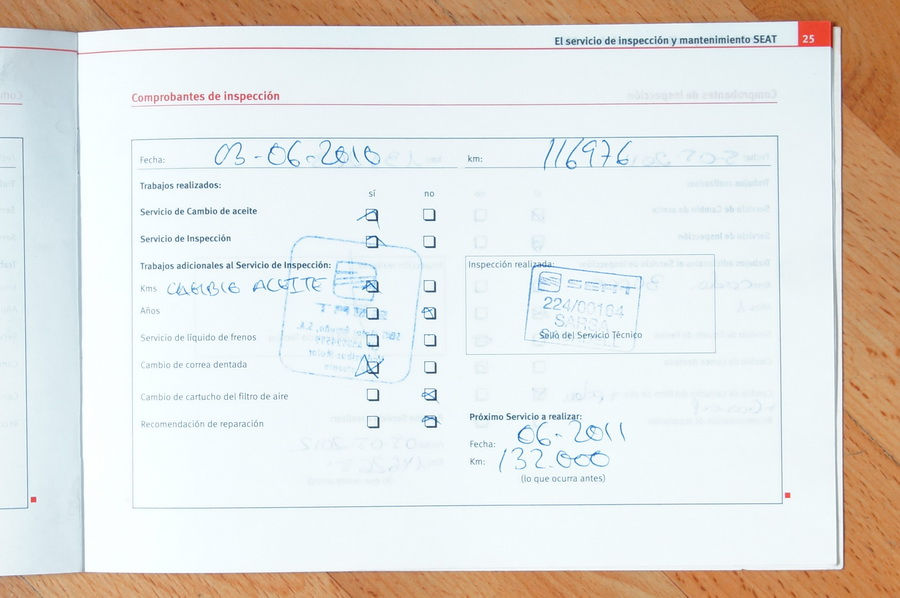 El servicio de inspección y mantenimiento SEAT 25
Comprobantes de inspección
Fecha: 03-06-2010 km: 116976
Trabajos realizados:
sí no
Servicio de Cambio de aceite
Servicio de Inspección
Trabajos adicionales al Servicio de Inspección:
Inspección realizada:
Kms CAMBIO ACEITE
Años
SEAT
224/00104
Servicio de líquido de frenos
Sello del Servicio Técnico
Cambio de correa dentada
Cambio de cartucho del filtro de aire
Recomendación de reparación
Próximo Servicio a realizar:
Fecha: 06-2011
Km: 132.000
(lo que ocurra antes)